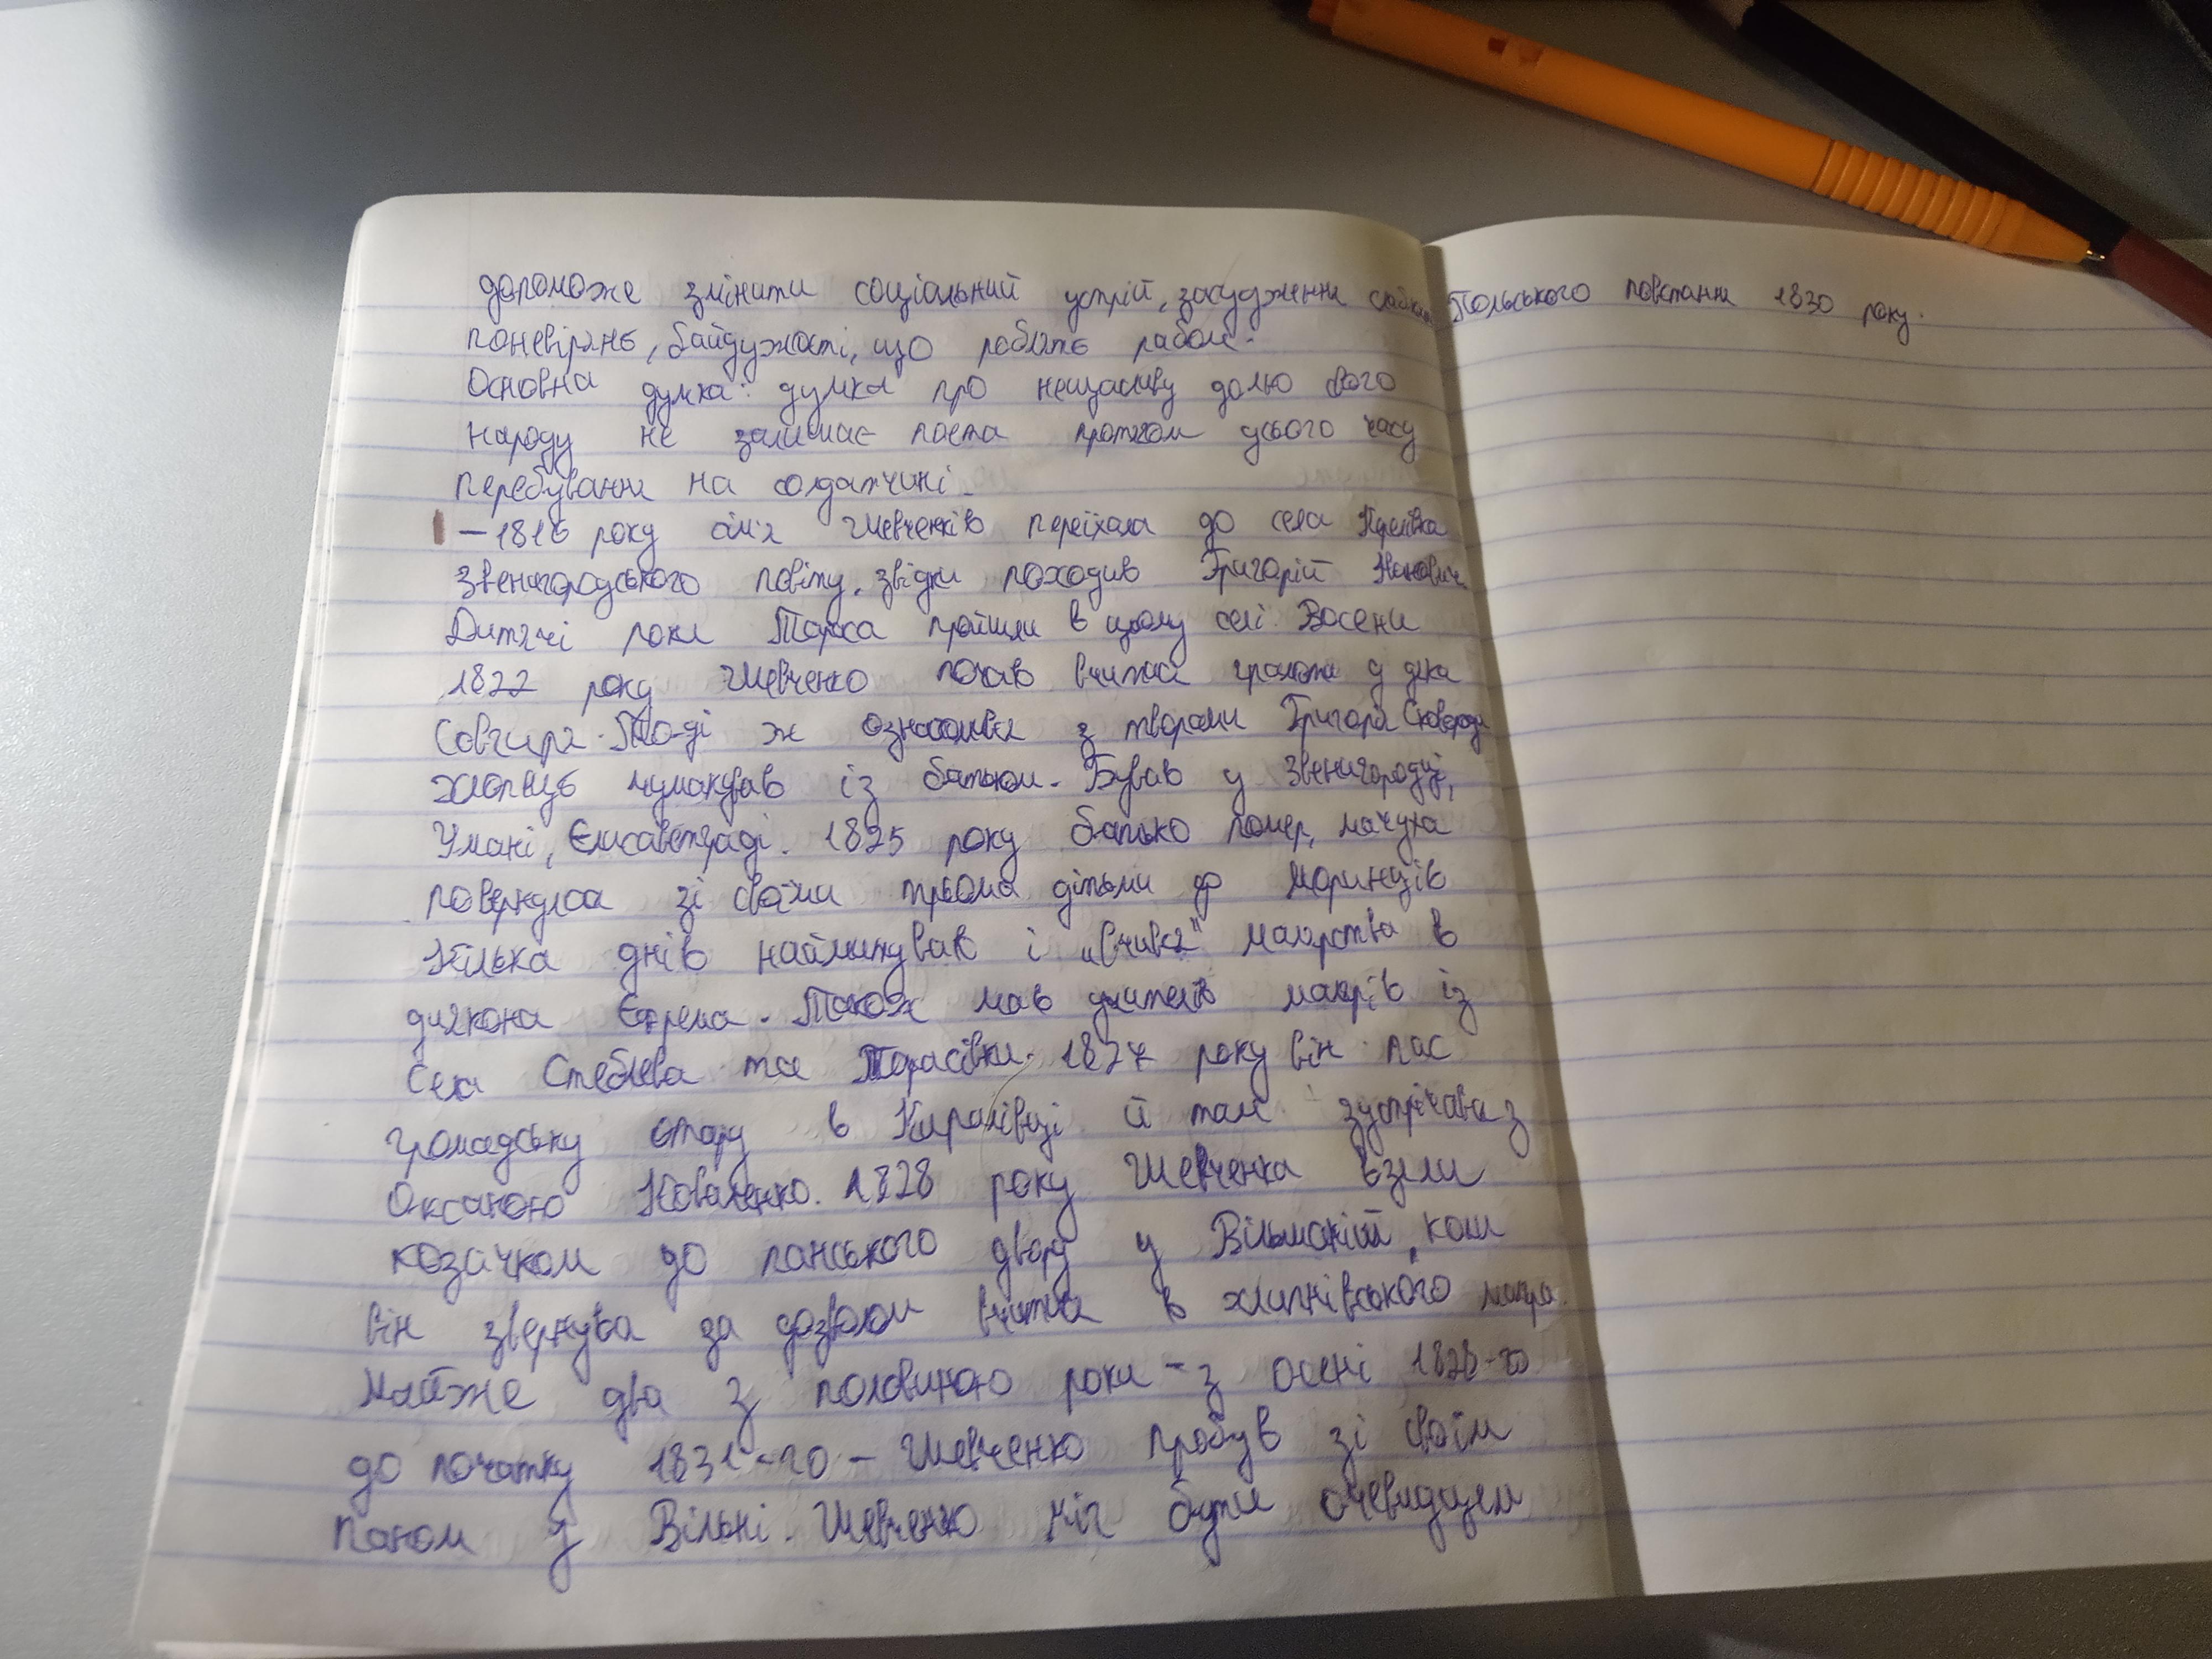 допоможе змінити соціальний устрій, засудження
поневірянь, байдужості, що роблять рабом.
Основна думка: думка про нещасливу долю свого
народу не залишає поета протягом усього часу
перебування на солдатчині.
– 1816 року сім'я Шевченків переїхала до села Кирилівка
Звенигородського повіту, звідки походив Григорій Іванович
Дитячі роки Тараса пройшли в цьому селі. Восени
1822 року Шевченко почав вчитися грамоти у дяка
Совгиря. Тоді ж ознайомився з творами Григорія Сковороди
Хлопець чумакував із батьком. Бував у Звенигородці,
Умані, Єлисаветграді. 1825 року батько помер, мачуха
повернулася зі своїми трьома дітьми до Моринців
Кілька днів наймитував і „вчився" малярства в
диякона Єфрема. Також мав учителів малярів із
села Стеблева та Тарасівки. 1827 року він пас
громадську отару в Кирилівці й там зустрічався з
Оксаною Коваленко. 1828 року Шевченка взяли
козачком до панського двору у Вільшаній, коли
він звернувся за дозволом вчитися в хлипнівського маляра.
Майже два з половиною роки – з осені 1828-го
до початку 1831-го – Шевченко пробув зі своїм
паном у Вільні. Шевченко міг бути очевидцем
Польського повстання 1830 року.